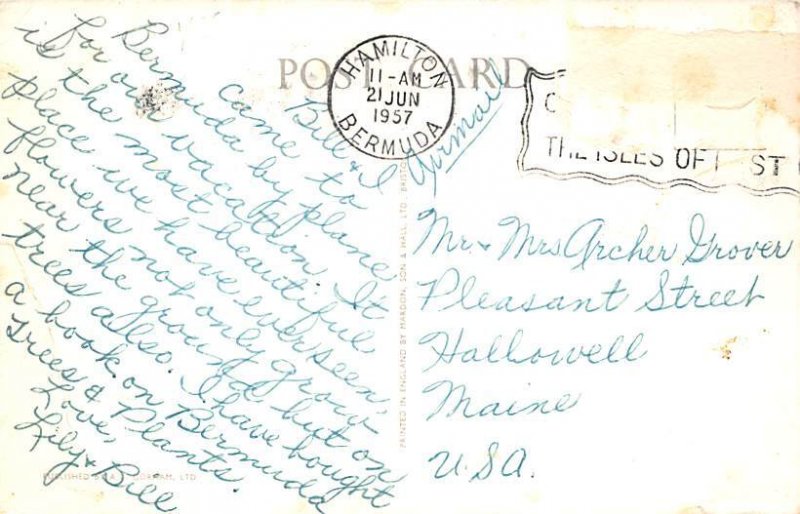 POST CARD
HAMILTON
11-AM
21 JUN
1957
BERMUDA
THE ISLES OF ST
Airmail
Bill & I
came to
Bermuda by plane
for our vacation. It
is the most beautiful
place we have ever seen,
flowers not only grow
near the ground but on
trees also. I have bought
a book on Bermuda
Trees & Plants.
Love,
Lily & Bill
PUBLISHED LTD
PRINTED IN ENGLAND BY MARDON, SON & HALL, LTD. BRISTO
Mr & Mrs Archer Grover
Pleasant Street
Hallowell
Maine
U.S.A.